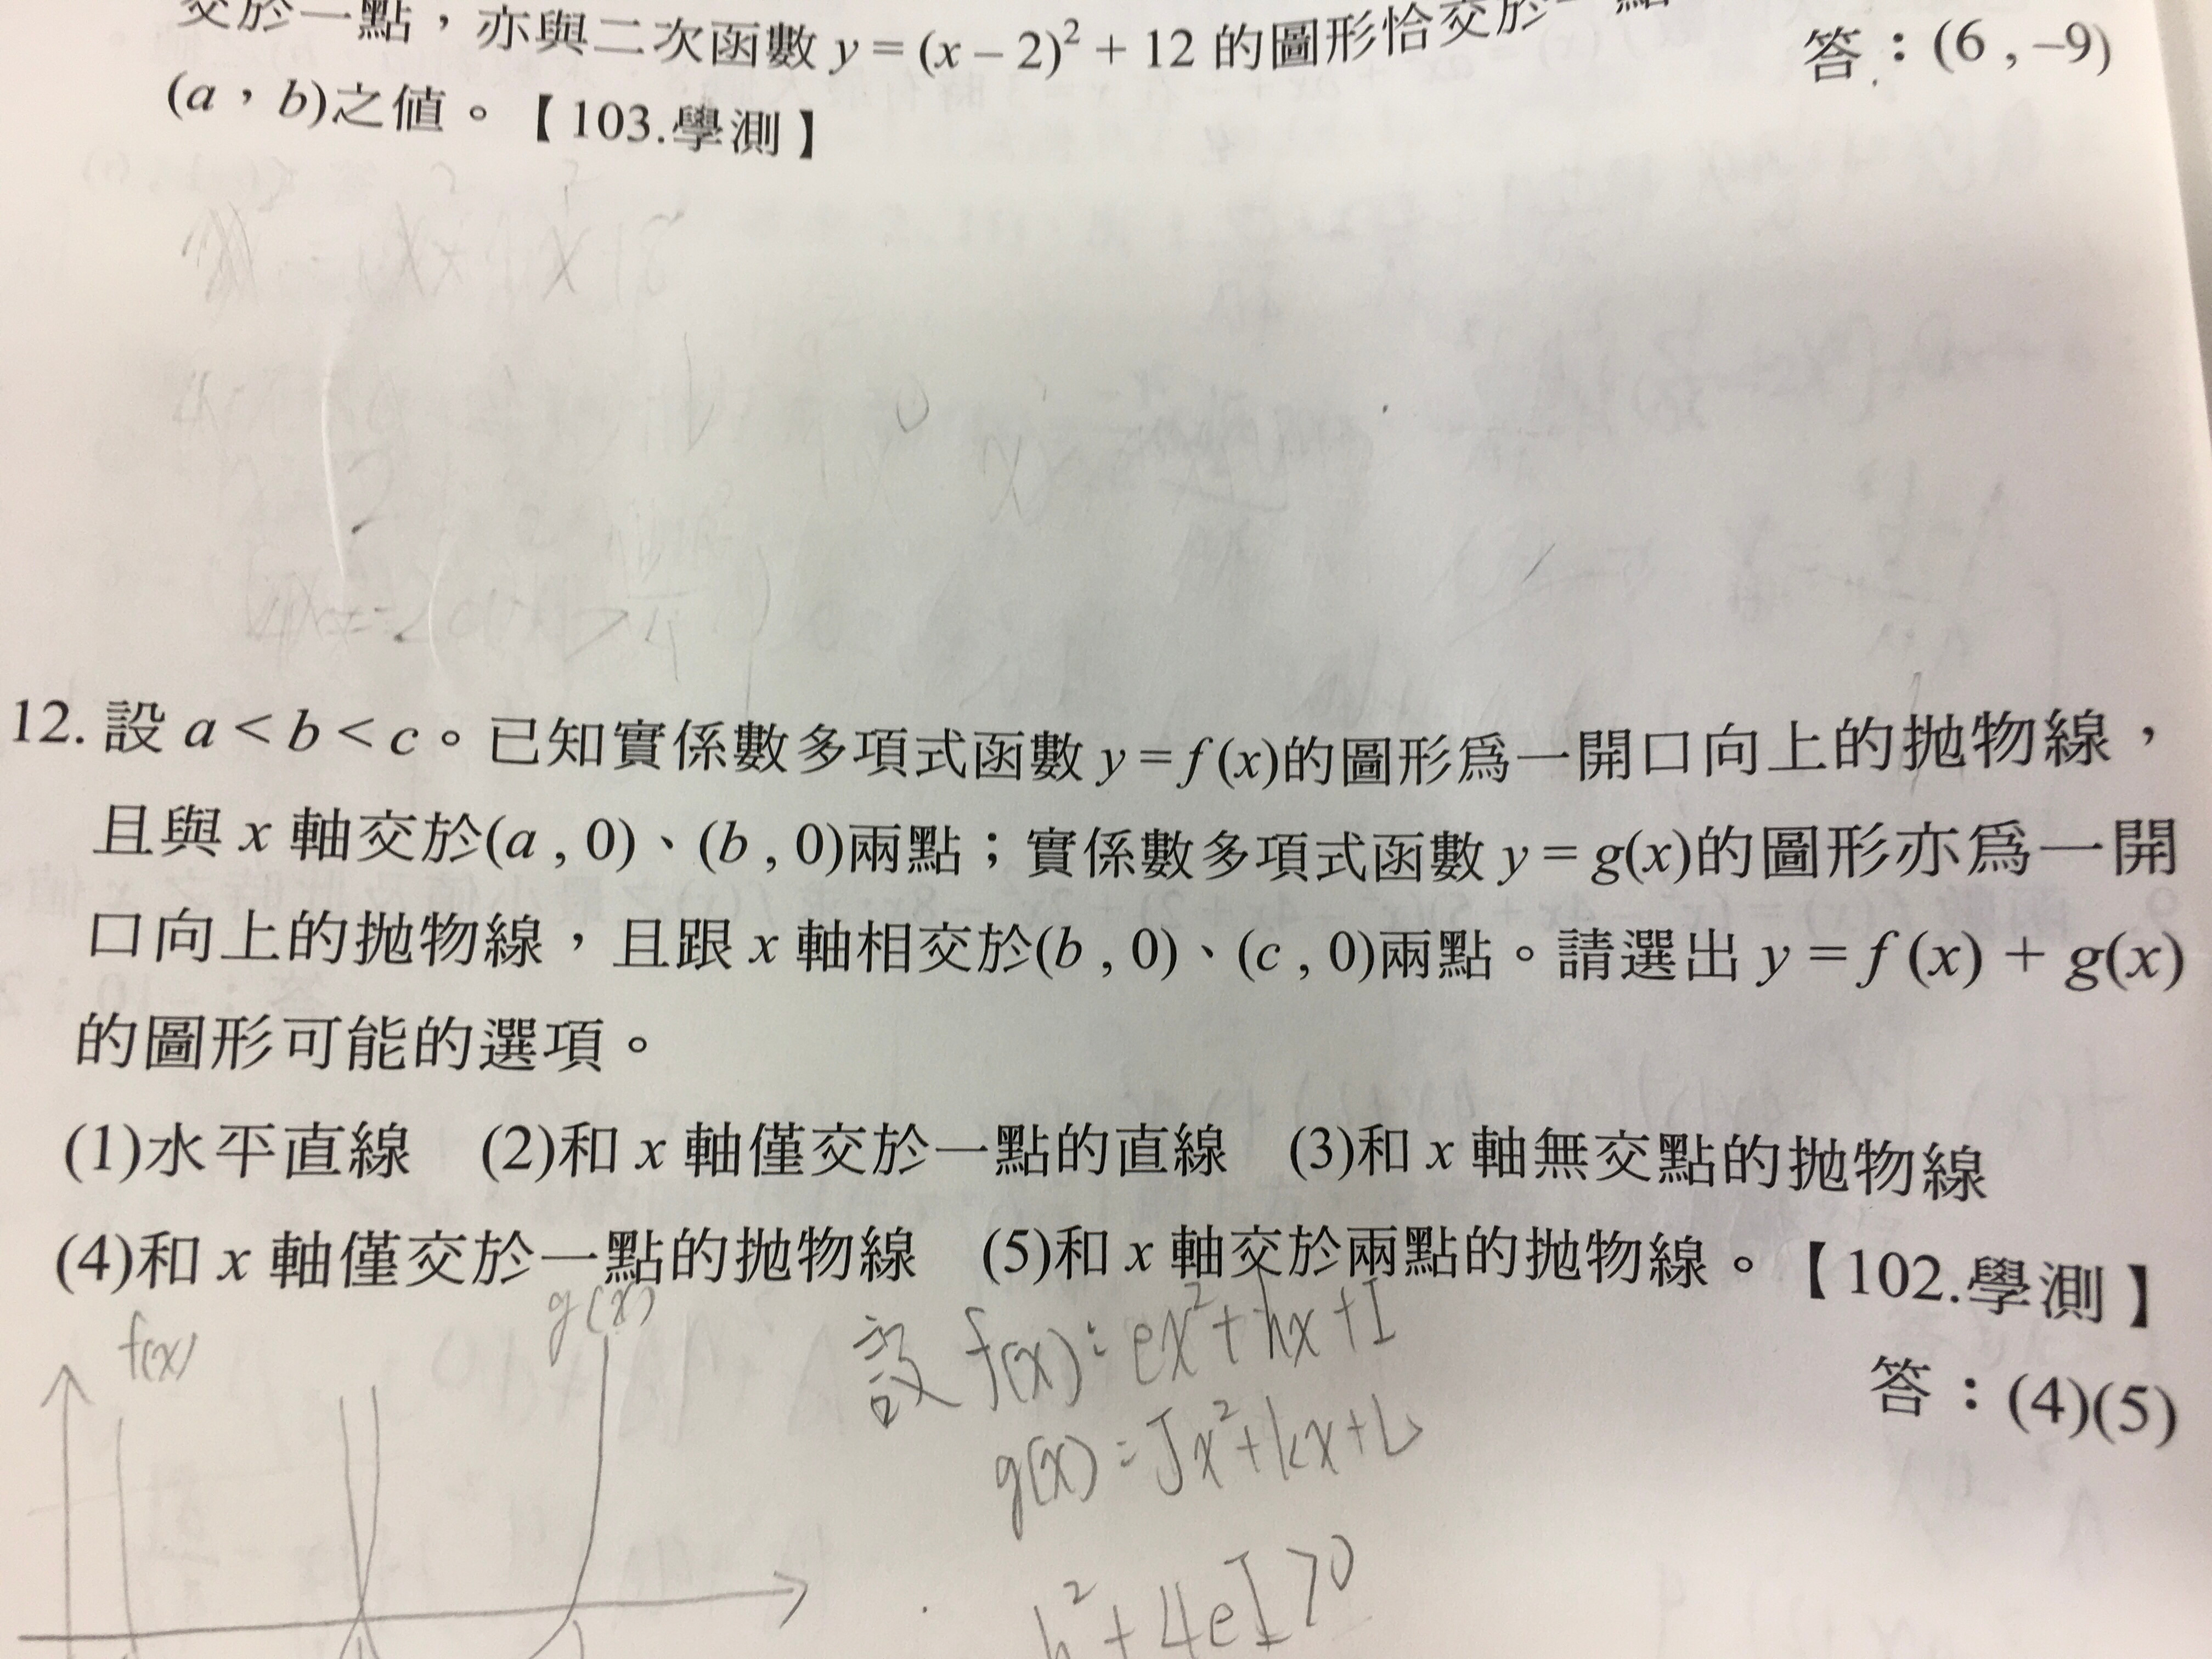 交於一點，亦與二次函數 y = (x – 2)² + 12 的圖形恰交於一點
(a，b)之值。【103.學測】
答：(6 , –9)
12. 設 a < b < c。已知實係數多項式函數 y = f (x)的圖形爲一開口向上的拋物線，
且與 x 軸交於(a , 0)、(b , 0)兩點；實係數多項式函數 y = g(x)的圖形亦爲一開
口向上的拋物線，且跟 x 軸相交於(b , 0)、(c , 0)兩點。請選出 y = f (x) + g(x)
的圖形可能的選項。
(1)水平直線 (2)和 x 軸僅交於一點的直線 (3)和 x 軸無交點的拋物線
(4)和 x 軸僅交於一點的拋物線 (5)和 x 軸交於兩點的拋物線。【102.學測】
答：(4)(5)
f(x)
g(x)
設 f(x) = ex² + hx + I
g(x) = Jx² + kx + L
h² + 4eI > 0